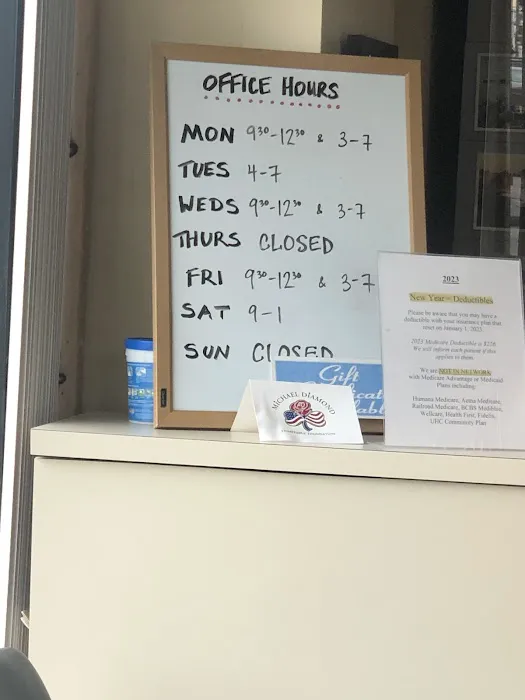 OFFICE HOURS
MON 9³⁰-12³⁰ & 3-7
TUES 4-7
WEDS 9³⁰-12³⁰ & 3-7
THURS CLOSED
FRI 9³⁰-12³⁰ & 3-7
SAT 9-1
SUN CLOSED
Gift
MICHAEL DIAMOND
2023
New Year = Deductibles
Please be aware that you may have a
deductible with your insurance plan that
reset on January 1, 2023.
2023 Medicare Deductible is $226
We will inform each patient if this
applies to them.
We are NOT IN NETWORK
with Medicare Advantage or Medicaid
Plans including:
Humana Medicare, Aetna Medicare,
Railroad Medicare, BCBS
Wellcare, Health First, Fidelis,
UHC Community Plan